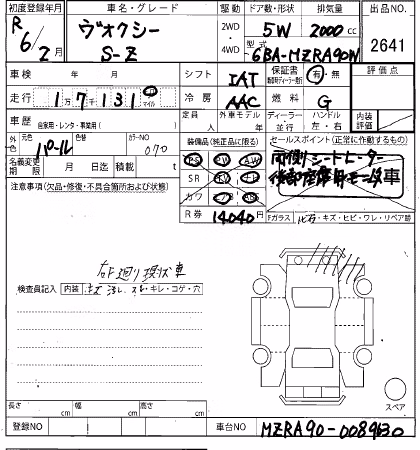 初度登録年月 車名・グレード 駆動 ドア数・形状 排気量 出品NO.
R 6/2月 ヴォクシー S-Z 2WD 4WD 5W 2000cc 2641
型式 6BA-MZRA90W
車検 年 月 シフト IAT 保証書 有・無 評価点
走行 1万7131 マイル 冷房 AAC 燃料 G
車歴 自家用・レンタ・事業用( ) 定員 人 外車モデル 年 ディーラー・並行 ハンドル 左・右 内装評価
外色 パール 元色 カラーNO 070
装備品(純正品に限る) セールスポイント(正常に作動するもの)
名義変更期限 月 日迄 積載 t PS PW AW 両側 シートヒーター
注意事項(欠品・修復・不具合箇所および状態) SR 後部座席用モニタ車
カワ
R券 14040円 Fガラス 飛石・キズ・ヒビ・ワレ・リペア跡
右F廻り損状車
検査員記入 内装 キズ・汚レ・スレ・キレ・コゲ・穴
スペア
長さ cm 幅 cm 高さ cm
登録NO 車台NO MZRA90-0089630